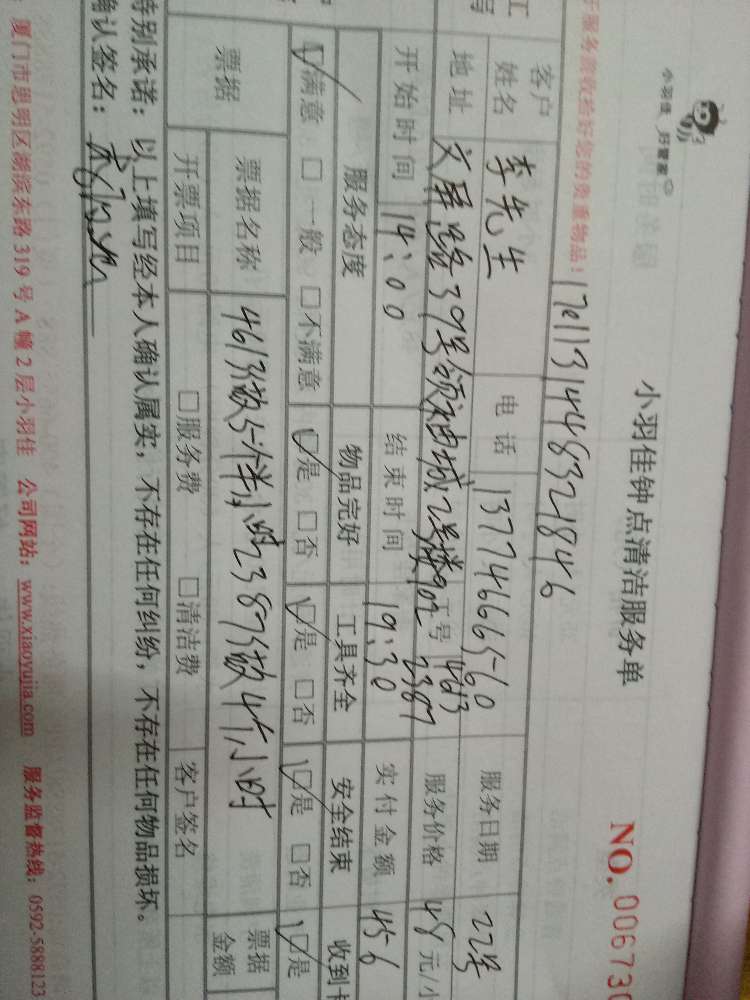 小羽佳 好管家
小羽佳钟点清洁服务单
NO. 00673
服务前收拾好您的贵重物品！
1701131448321846
客户姓名 李先生 电话 13774666560 服务日期 22号
地址 文屏路39号领袖城2号楼902 工号 4613 2387 服务价格 48元/小
开始时间 14:00 结束时间 19:30 实付金额 456
服务态度 物品完好 工具齐全 安全结束 收到
☑满意 □一般 □不满意 ☑是 □否 ☑是 □否 ☑是 □否 ☑是
票据 票据名称 4613做5个半小时2387做4个小时 票据金额
开票项目 □服务费 □清洁费 客户签名
特别承诺：以上填写经本人确认属实，不存在任何纠纷，不存在任何物品损坏。
确认签名：
厦门市思明区湖滨东路319号A幢2层小羽佳 公司网站：www.xiaoyujia.com 服务监督热线：0592-5888123